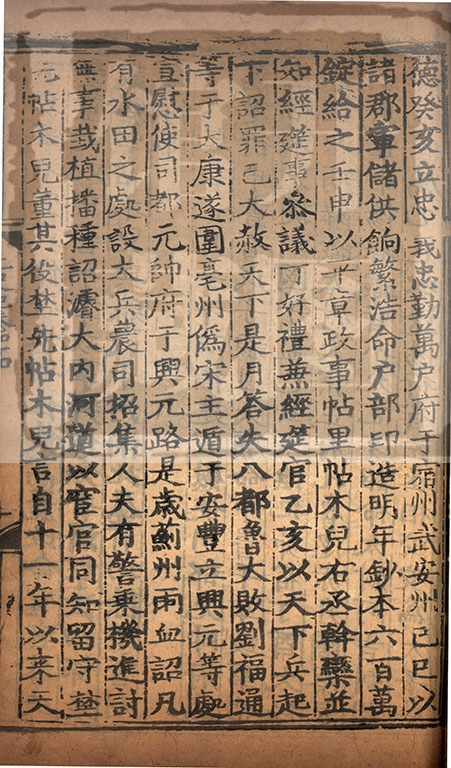 德癸亥立忠義忠勤萬户府于宿州武安州己巳以
諸郡軍儲供餉繁浩命户部印造明年鈔本六百萬
錠給之壬申以平章政事帖里帖木兒右丞斡欒並
知經筵事參議丁好禮兼經筵官乙亥以天下兵起
下詔罪己大赦天下是月荅失八都魯大敗劉福通
等于太康遂圍亳州僞宋主遁于安豐立興元等處
宣慰使司都元帥府于興元路是歲薊州雨血詔凡
有水田之處設大兵農司招集人夫有警乘機進討
無事栽植播種詔濬大內河道以宦官同知留守埜
先帖木兒董其役埜先帖木兒言自十一年以來天